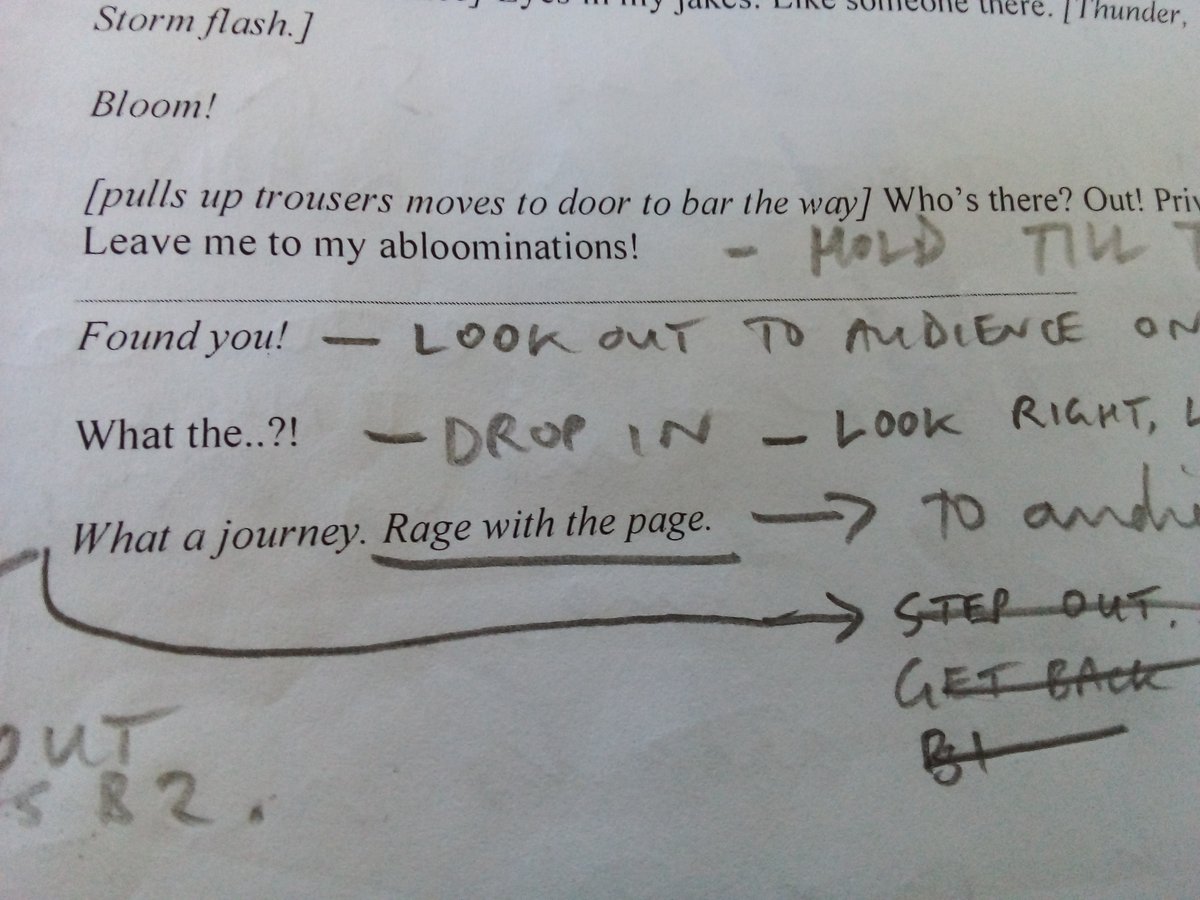 Eyes in my jakes. Like someone there. [Thunder,
Storm flash.]
Bloom!
[pulls up trousers moves to door to bar the way] Who's there? Out! Priv
Leave me to my abloominations! - HOLD TILL T
Found you! — LOOK OUT TO AUDIENCE ON
What the..?! — DROP IN — LOOK RIGHT, L
What a journey. Rage with the page. → TO audi
→ STEP OUT.
GET BACK
B1
OUT
B2.